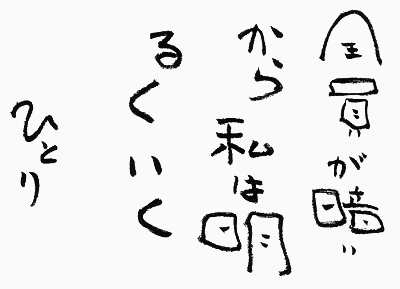 全員が暗い
から私は明
るくいく
ひとり